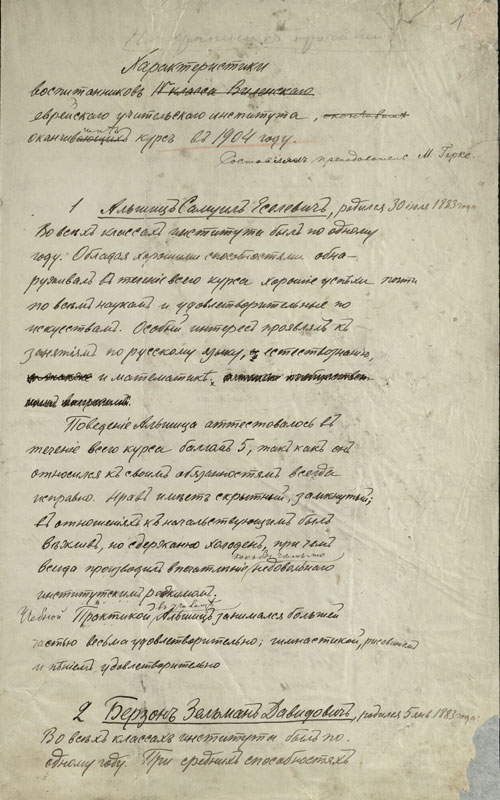 1
Характеристики
воспитанниковъ IV класса Виленскаго
еврейскаго учительскаго института,
оканчивающихъ курсъ въ 1904 году.
Составлялъ преподаватель М. Герке.
1 Альшицъ Самуилъ Іоселевичъ, родился 30 іюля 1883 года
Во всѣхъ классахъ института былъ по одному
году. Обладая хорошими способностями обна-
руживалъ въ теченіе всего курса хорошіе успѣхи почти
по всѣмъ наукамъ и удовлетворительные по
искусствамъ. Особый интересъ проявлялъ къ
занятіямъ по русскому языку, естествознанію,
и математикѣ,
Поведеніе Альшица аттестовалось въ
теченіе всего курса балломъ 5, такъ какъ онъ
относился къ своимъ обязанностямъ всегда
исправно. Нравъ имѣетъ скрытный, замкнутый;
въ отношеніяхъ къ начальствующимъ былъ
вѣжливъ, но сдержанно холоденъ, при чемъ
всегда производилъ впечатлѣніе недовольнаго
институтскимъ режимомъ.
Практикой Альшицъ занимался большей
частью весьма удовлетворительно; гимнастикой, рисованіемъ
и пѣніемъ удовлетворительно
2 Берзонъ Зельманъ Давидовичъ, родился 5 янв 1883 года
Во всѣхъ классахъ института былъ по
одному году. При среднихъ способностяхъ